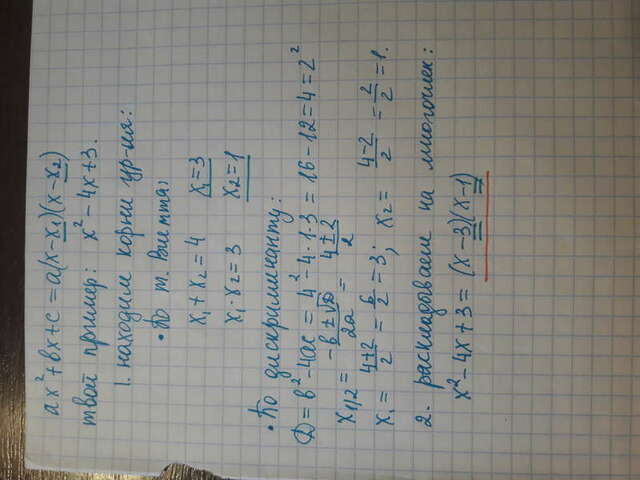 ax²+bx+c = a(x-x₁)(x-x₂)
твой пример: x²-4x+3.
1. находим корни ур-ия:
• По т. Виетта:
x₁+x₂=4 x₁=3
x₁·x₂=3 x₂=1
• По дискриминанту:
D=b²-4ac = 4²-4·1·3 = 16-12=4=2²
x₁/₂ = (-b±√D)/2a = (4±2)/2
x₁ = (4+2)/2 = 6/2 = 3; x₂ = (4-2)/2 = 2/2 = 1.
2. раскладываем на многочлен:
x²-4x+3 = (x-3)(x-1)